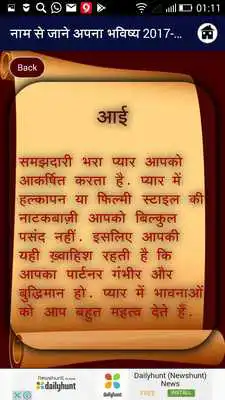 01:11
नाम से जाने अपना भविष्य 2017-...
Back
आई
समझदारी भरा प्यार आपको
आकर्षित करता है. प्यार में
हल्कापन या फिल्मी स्टाइल की
नाटकबाज़ी आपको बिल्कुल
पसंद नहीं. इसलिए आपकी
यही ख़्वाहिश रहती है कि
आपका पार्टनर गंभीर और
बुद्धिमान हो. प्यार में भावनाओं
को आप बहुत महत्व देते हैं.
Newshunt is now
dailyhunt
dailyhunt
Dailyhunt (Newshunt)
News
FREE
INSTALL